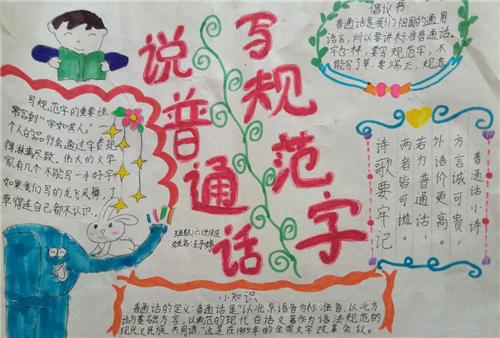 说普通话
写规范字
倡议书
普通话是我们祖国的通用
语言,所以要讲标准普通话。
字也一样,要写规范字,不
能写了草。要端正,规范
写规范字的重要性
常言到“字如其人。”
个人的品行会通过字表现
得淋漓尽致,伟大的文学
家有几个不能写一手好字
如果我们写的龙飞凤舞,了
草得连自己都不认识。
班级:六(
姓名:王
普通话小诗
方言诚可贵,
外语价更高。
若为普通话,
两者皆可抛。
诗歌要牢记
小知识
普通话的定义:普通话是“以北京语音为标准音,以北方
话为基础方言,以典范的现代白话文著作为语法规范的
现代汉民族共同语,”这是在1955年的全国文字改革会议。